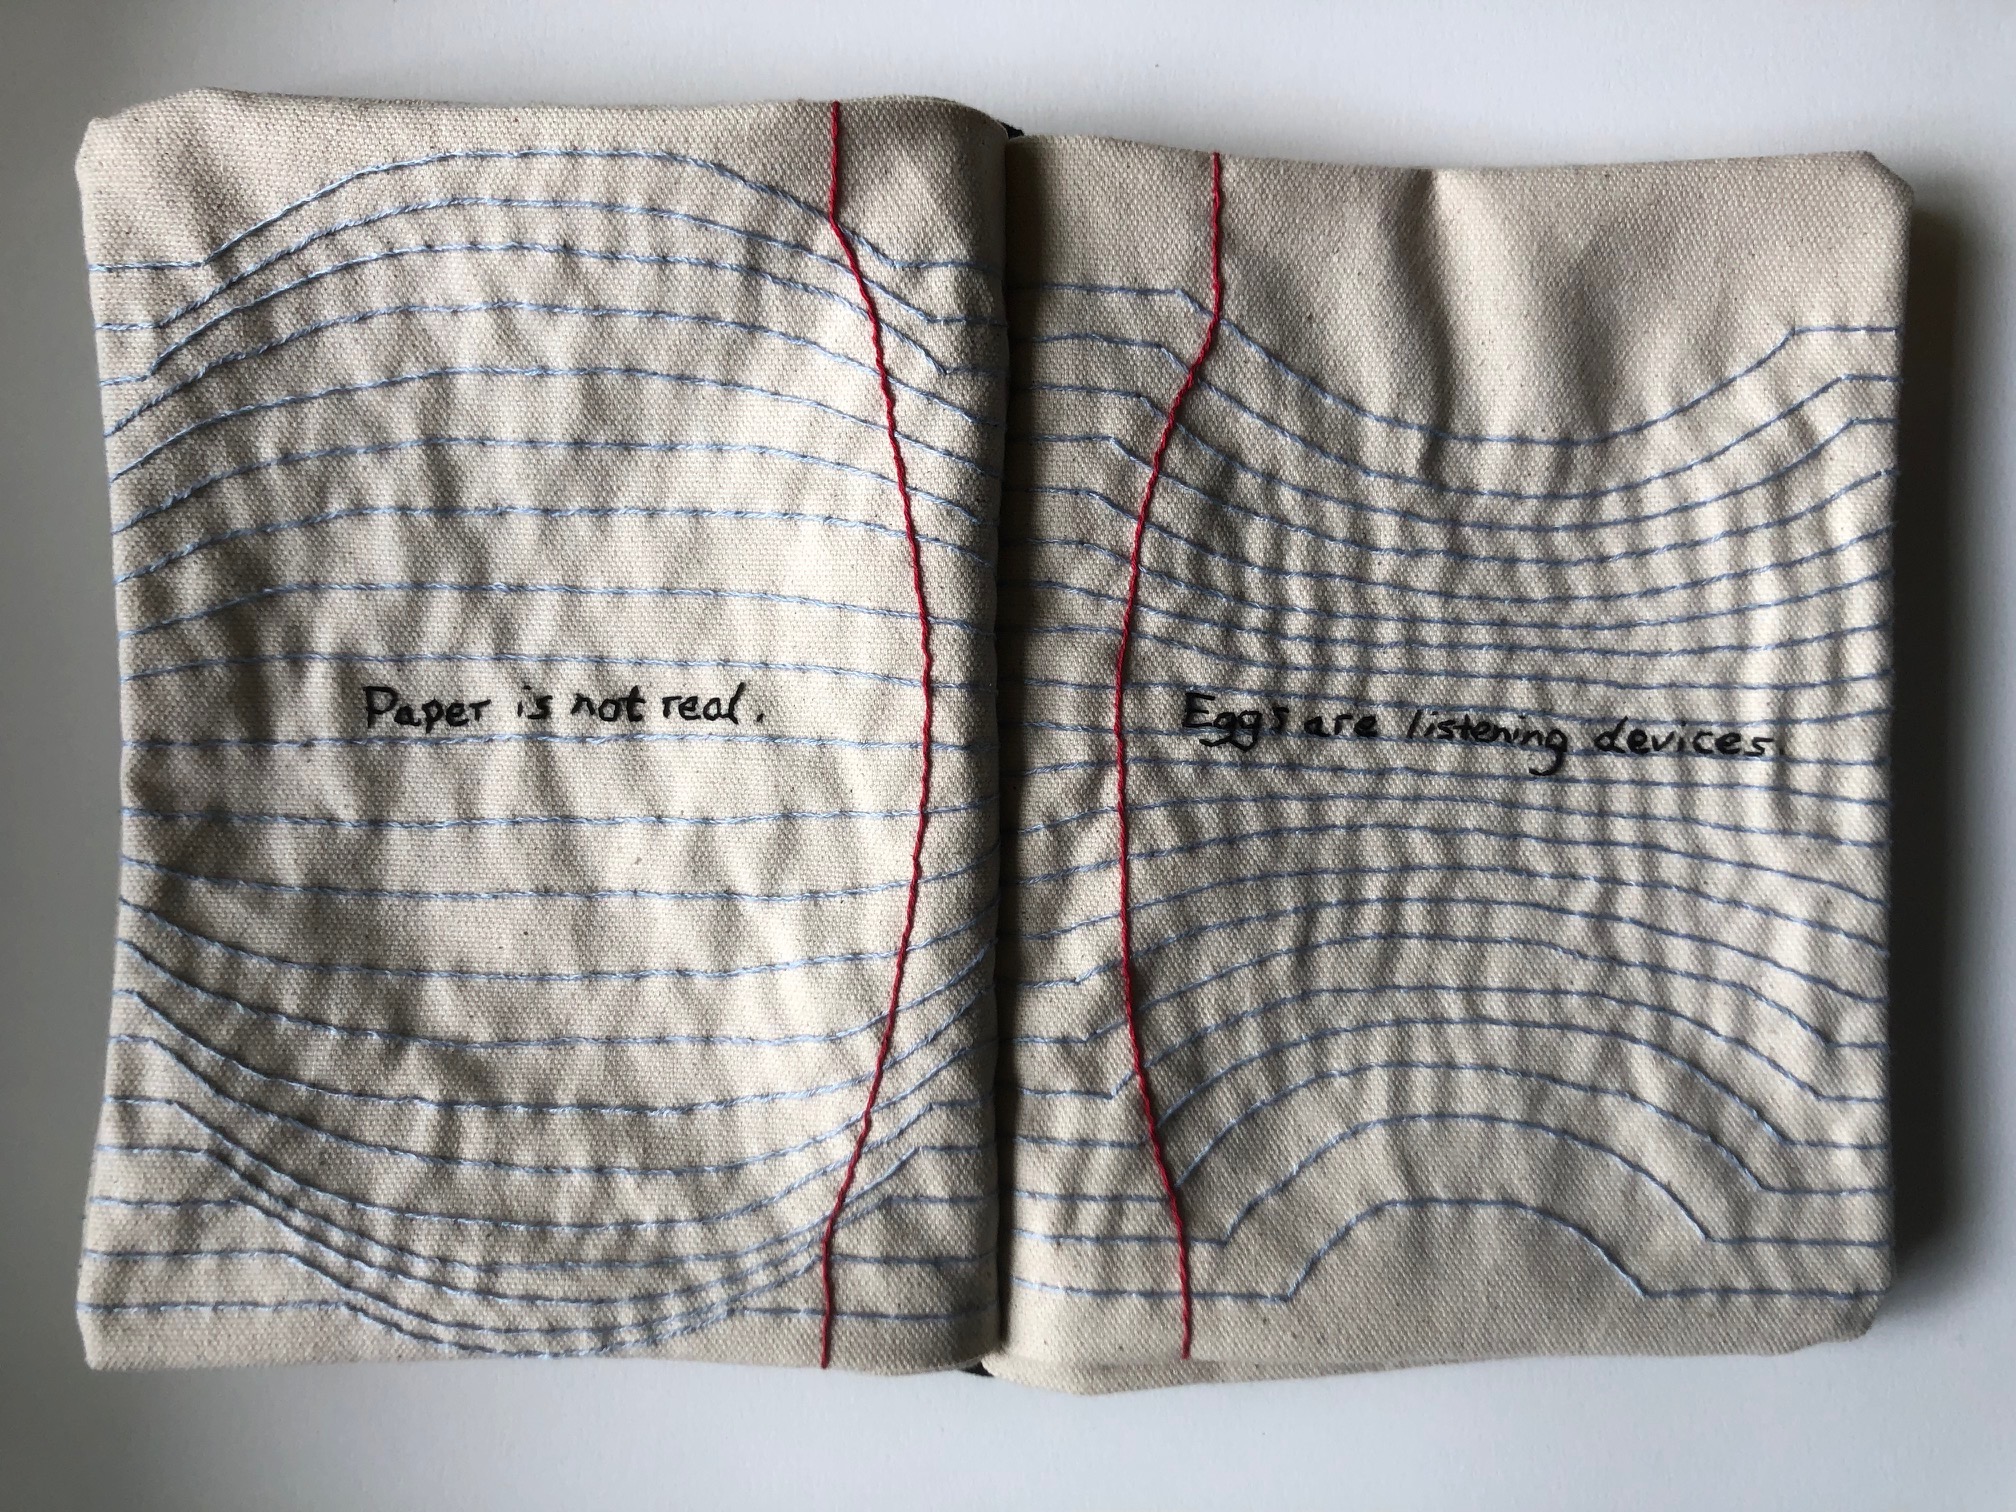 Paper is not real.
Eggs are listening devices.